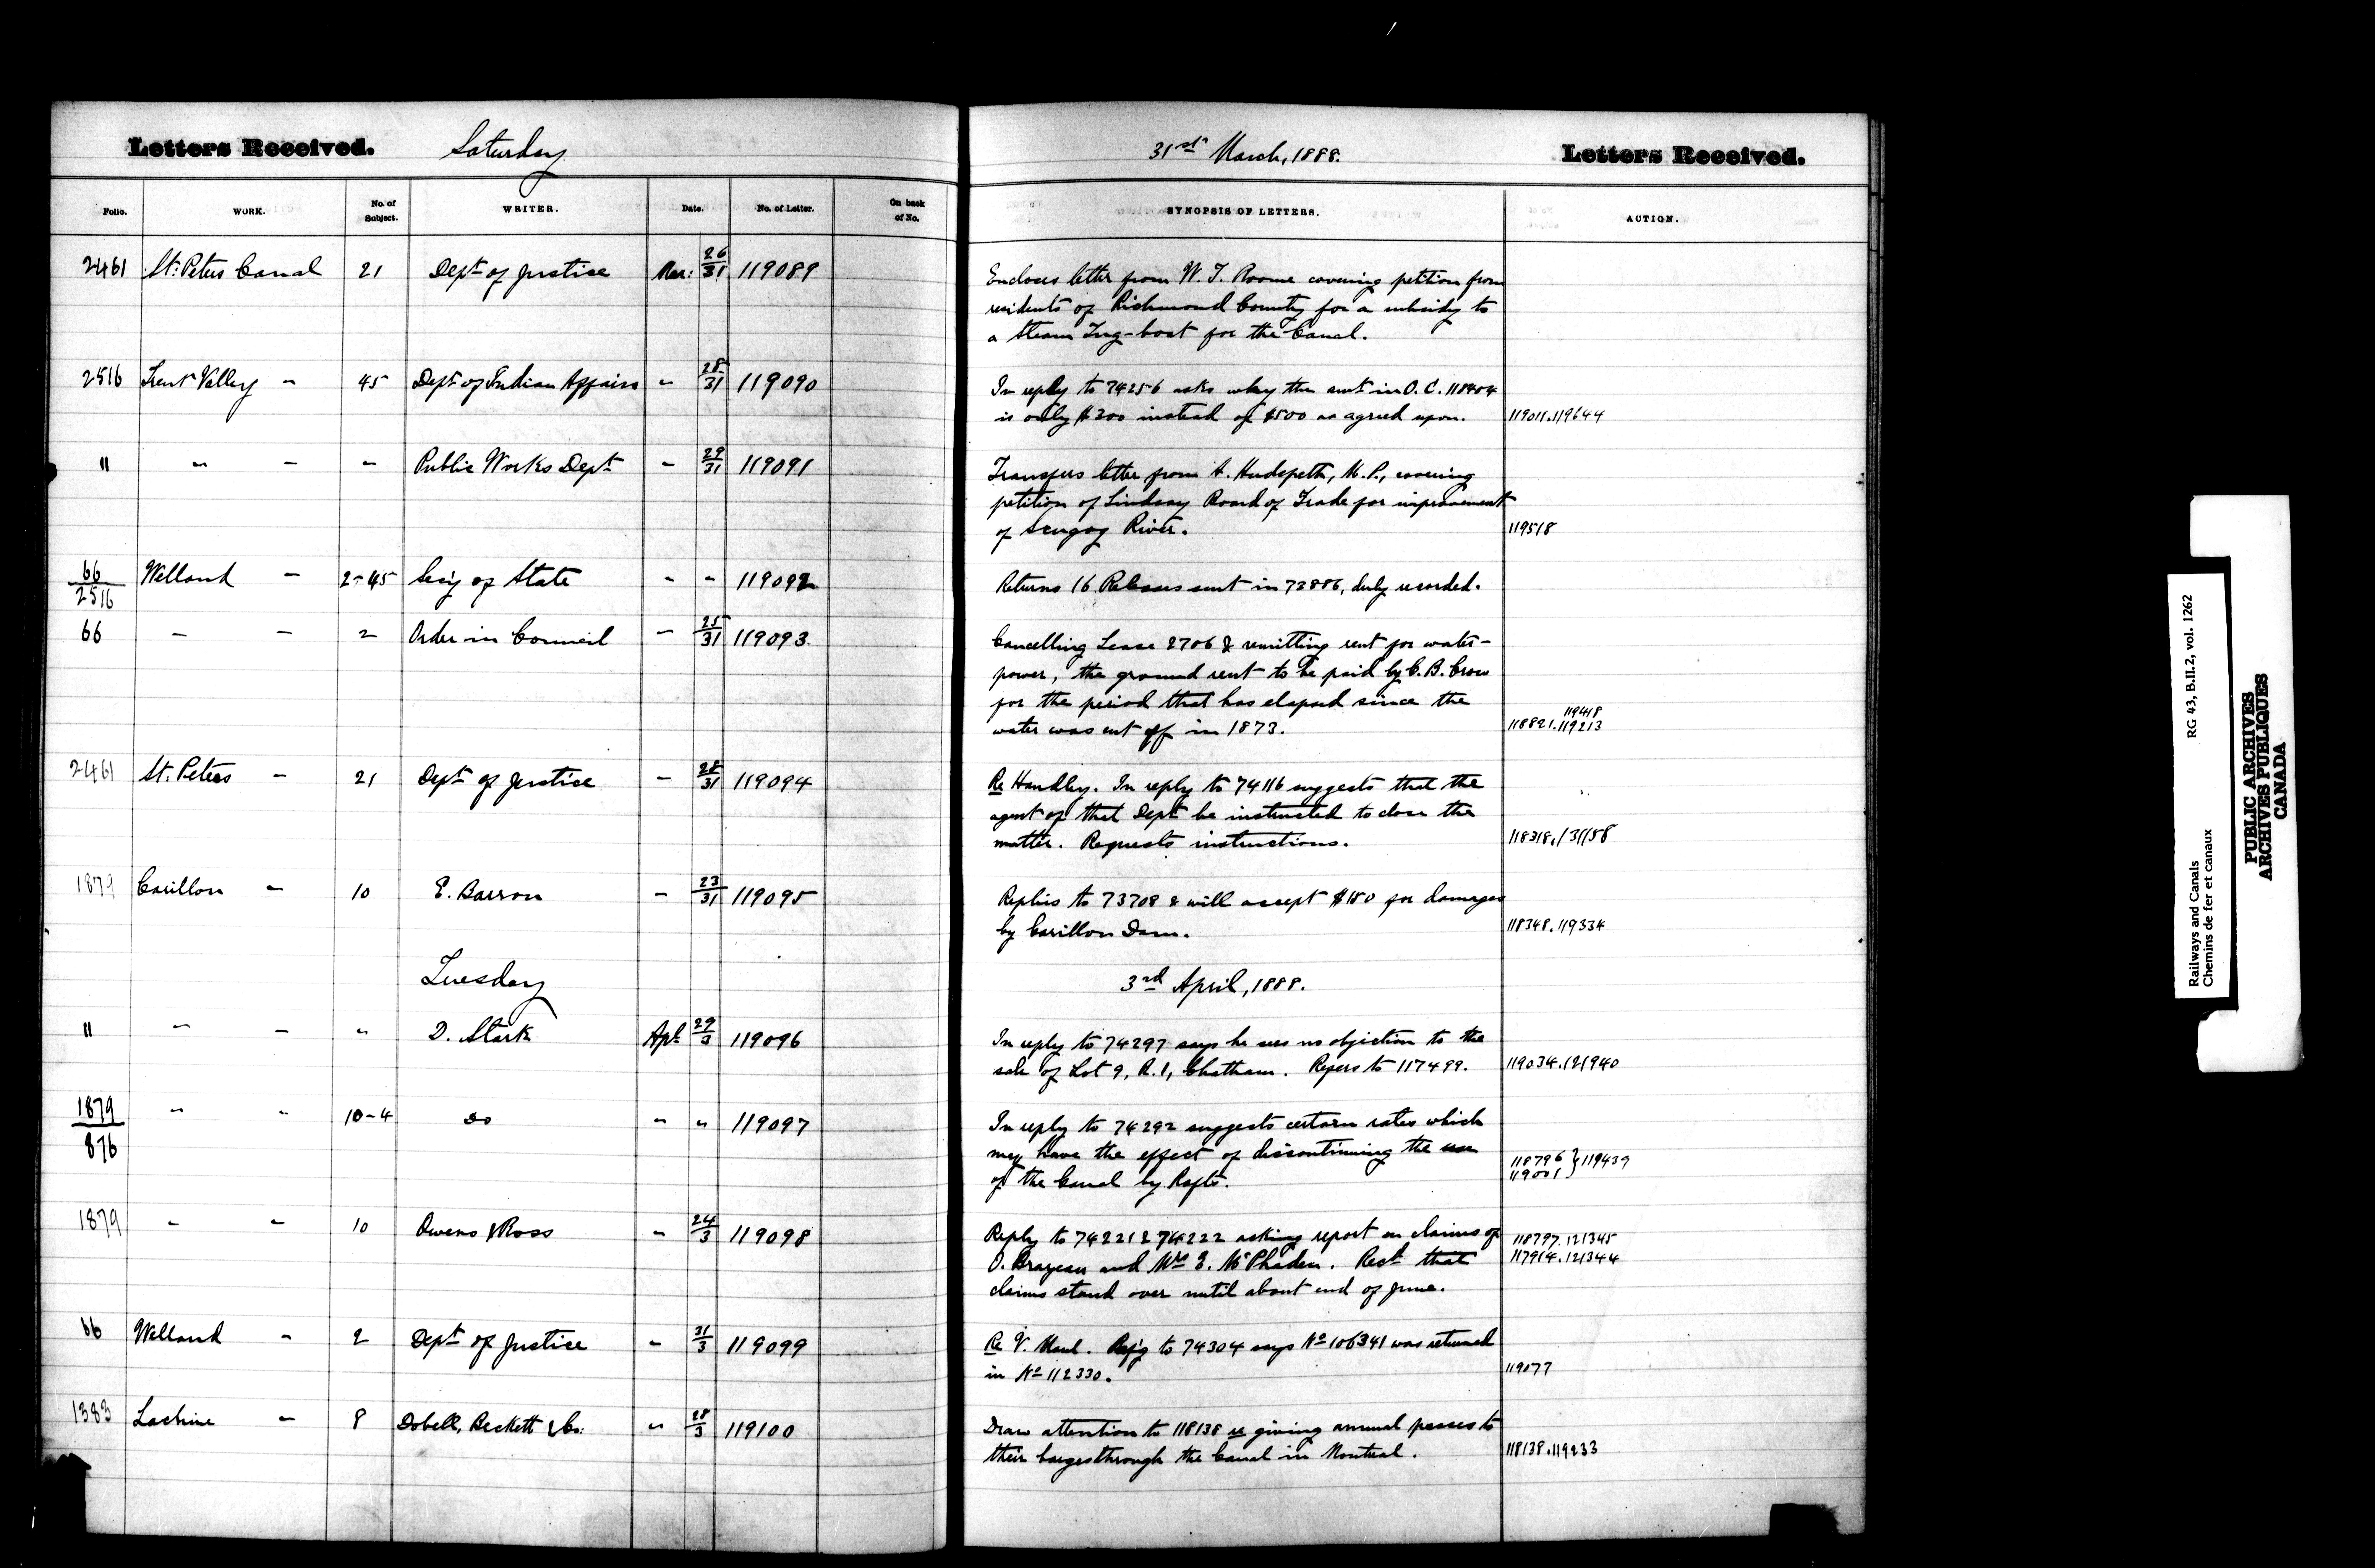 Letters Received. Saturday
Folio. WORK. No. of Subject. WRITER. Date. No. of Letter. On back of No.
2461 St. Peters Canal 21 Dept of Justice Mar: 26/31 119089
2516 Trent Valley " 45 Dept of Indian Affairs " 28/31 119090
" " " " Public Works Dept " 29/31 119091
66/2516 Welland " 2-45 Sec'y of State " " 119092
66 " " 2 Order in Council " 25/31 119093
2461 St. Peters " 21 Dept of Justice " 28/31 119094
1879 Carillon " 10 E. Barron " 23/31 119095
Tuesday
" " " " D. Stark Apl 29/3 119096
1879/876 " " 10-4 do " " 119097
1879 " " 10 Owens & Ross " 24/3 119098
66 Welland " 2 Dept of Justice " 31/3 119099
1383 Lachine " 8 Dobell, Beckett & Co: " 28/3 119100
31st March, 1888. Letters Received.
SYNOPSIS OF LETTERS. ACTION.
Encloses letter from W. F. Roome covering petition from
residents of Richmond County for a subsidy to
a Steam Tug-boat for the Canal.
In reply to 74256 asks why the amt in O.C. 118404
is only $300 instead of $500 as agreed upon. 119011.119644
Transfers letter from A. Hudspeth, M.P., covering
petition of Lindsay Board of Trade for improvement
of Scugog River. 119518
Returns 16 Releases sent in 73886, duly recorded.
Cancelling Lease 2706 & remitting rent for water-
power, the ground rent to be paid by C. B. Crow
for the period that has elapsed since the
119418
water was cut off in 1873. 118821.119213
Re Handley. In reply to 74116 suggests that the
agent of that Dept be instructed to close the
matter. Requests instructions. 118318./31158
Replies to 73708 & will accept $150 for damages
by Carillon Dam. 118348.119334
3rd April, 1888.
In reply to 74297 says he sees no objection to the
sale of Lot 9, R.1, Chatham. Refers to 117499. 119034.121940
In reply to 74292 suggests certain rates which
may have the effect of discontinuing the use
118796 } 119439
119001
of the Canal by Rafts.
Reply to 74221 & 74222 asking report on claims of 118797.121345
O. Brazeau and Mrs E. McPhaden. Rect that 117914.121344
claims stand over until about end of June.
Re V. Maul. Ref'g to 74304 says No 106341 was returned
in No 112330. 119077
Draw attention to 118138 re giving annual passes to
their barges through the Canal in Montreal. 118138.119233
RG 43, B.II.2, vol. 1262
Railways and Canals
Chemins de fer et canaux
PUBLIC ARCHIVES
ARCHIVES PUBLIQUES
CANADA